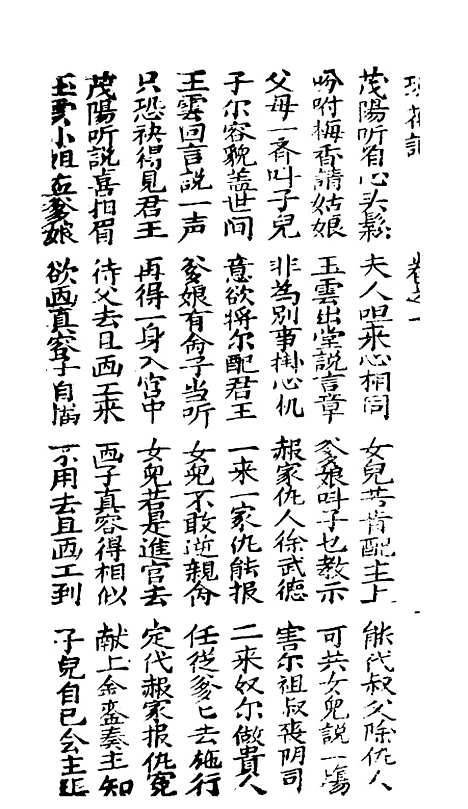 記 卷之一
茂陽听有心头鬆 夫人咀来心相同 女兒若肯配主上 能代叔父除仇人
吩咐梅香請姑娘 玉雲出堂說言章 爹娘呌子乜教示 可共女兒說一塲
父母一斉叫子兒 非為別事掛心机 赧家仇人徐武德 害尔祖叔丧阴司
子尔容貌盖世间 意欲将尔配君王 一来一家仇能报 二来奴尔做貴人
王雲回言說一声 爹娘有命子当听 女兒不敢逆親命 任從爹匕去施行
只恐袂得見君王 再得一身入宮中 女兒若是進宮去 定代赧家报仇冤
茂陽听說喜拍眉 待父去旦画工来 画子真容得相似 献上金銮奏主知
玉雲小姐在爹娘 欲画真容子自 不用去且画工到 子兒自己会主